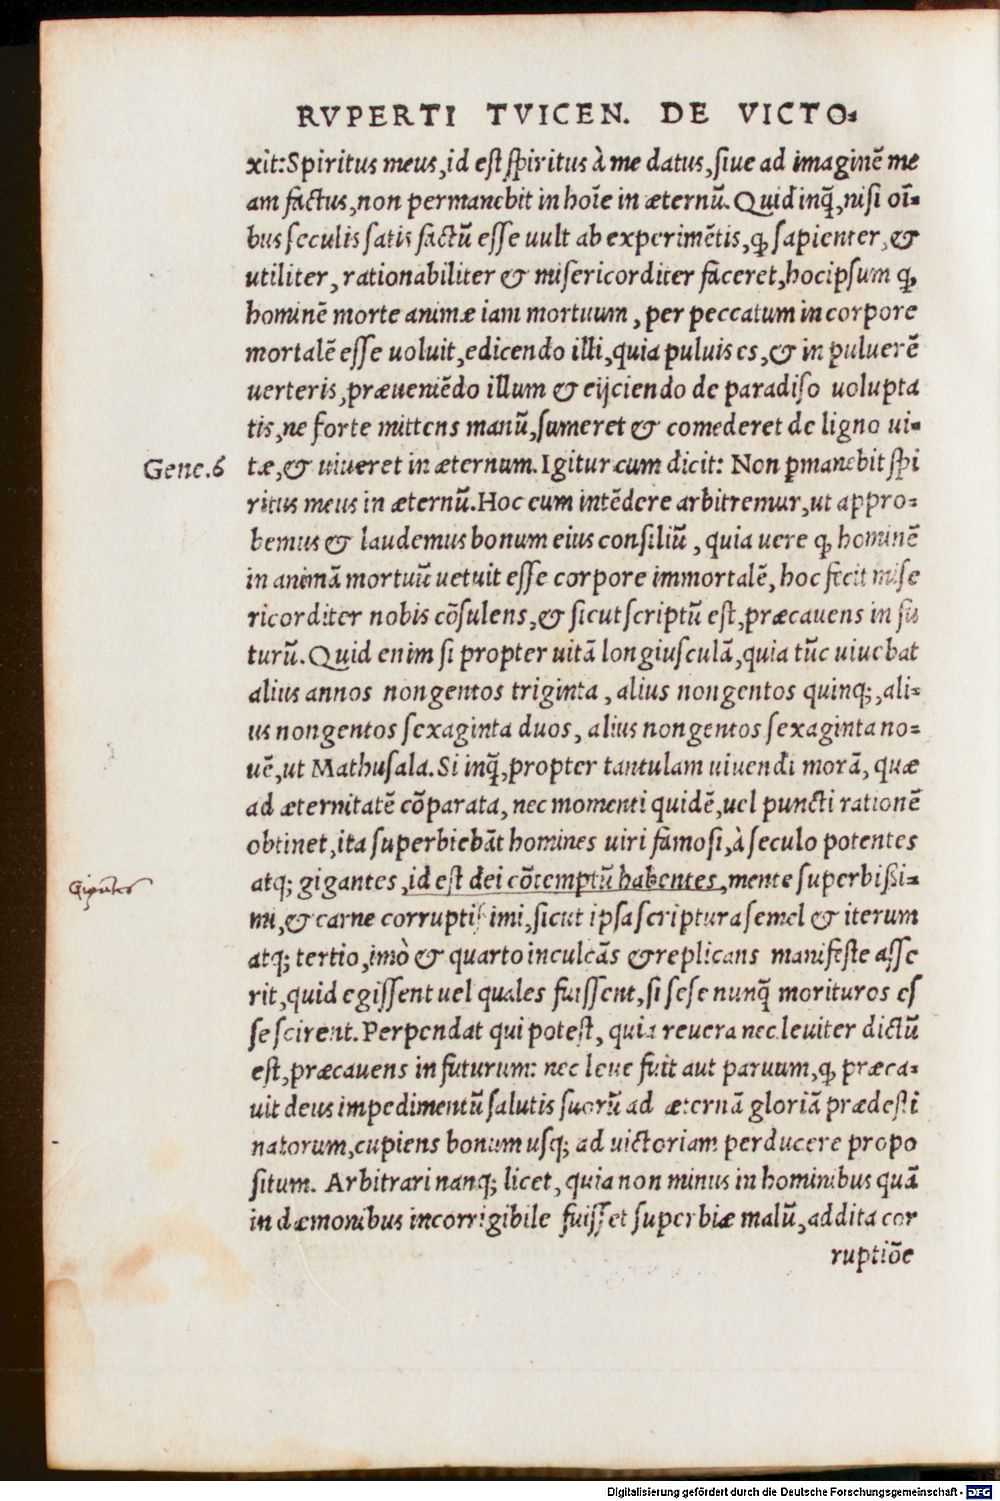 RVPERTI TVICEN. DE VICTO⸗
xit: Spiritus meus, id est spiritus à me datus, siue ad imaginē me
am factus, non permanebit in hoīe in æternū. Quid inꝗ̃, nisi oī⸗
bus seculis satis factū esse uult ab experimētis, ꝙ sapienter, &
utiliter, rationabiliter & misericorditer faceret, hoc ipsum ꝙ
hominē morte animæ iam mortuum, per peccatum in corpore
mortalē esse uoluit, edicendo illi, quia puluis es, & in puluerē
uerteris, præueniēdo illum & eijciendo de paradiso uolupta
tis, ne forte mittens manū, sumeret & comederet de ligno ui⸗
Gene.6 tæ, & uiueret in æternum. Igitur cum dicit: Non ꝑmanebit spi
ritus meus in æternū. Hoc eum intēdere arbitremur, ut appro⸗
bemus & laudemus bonum eius consiliū, quia uere ꝙ hominē
in animā mortuū uetuit esse corpore immortalē, hoc fecit mise
ricorditer nobis cōsulens, & sicut scriptū est, præcauens in fu
turū. Quid enim si propter uitā longiusculā, quia tūc uiuebat
alius annos nongentos triginta, alius nongentos quinq;, ali⸗
us nongentos sexaginta duos, alius nongentos sexaginta no⸗
uē, ut Mathusala. Si inꝗ̃, propter tantulam uiuendi morā, quæ
ad æternitatē cōparata, nec momenti quidē, uel puncti rationē
obtinet, ita superbiebāt homines uiri famosi, à seculo potentes
Gigātes atq; gigantes, id est dei cōtemptū habentes, mente superbißi⸗
mi, & carne corruptissimi, sicut ipsa scriptura semel & iterum
atq; tertio, imò & quarto inculcās & replicans manifeste asse
rit, quid egissent uel quales fuissent, si sese nunꝗ̃ morituros es
se scirent. Perpendat qui potest, quia reuera nec leuiter dictū
est, præcauens in futurum: nec leue fuit aut paruum, ꝙ præca⸗
uit deus impedimentū salutis suorū ad æternā gloriā prædesti
natorum, cupiens bonum usq; ad uictoriam perducere propo
situm. Arbitrari nanq; licet, quia non minus in hominibus quā
in dæmonibus incorrigibile fuisset superbiæ malū, addita cor
ruptiōe
Digitalisierung gefördert durch die Deutsche Forschungsgemeinschaft - DFG